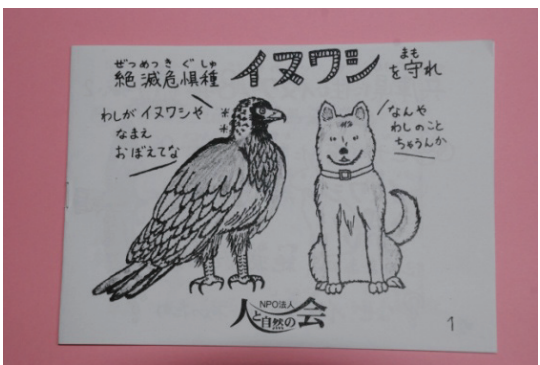 ぜつめつきぐしゅ
絶滅危惧種 イヌワシ を守れ
まも
わしがイヌワシや
なまえ
おぼえてな
なんや
わしのこと
ちゃうんか
NPO法人
人と自然の会
1